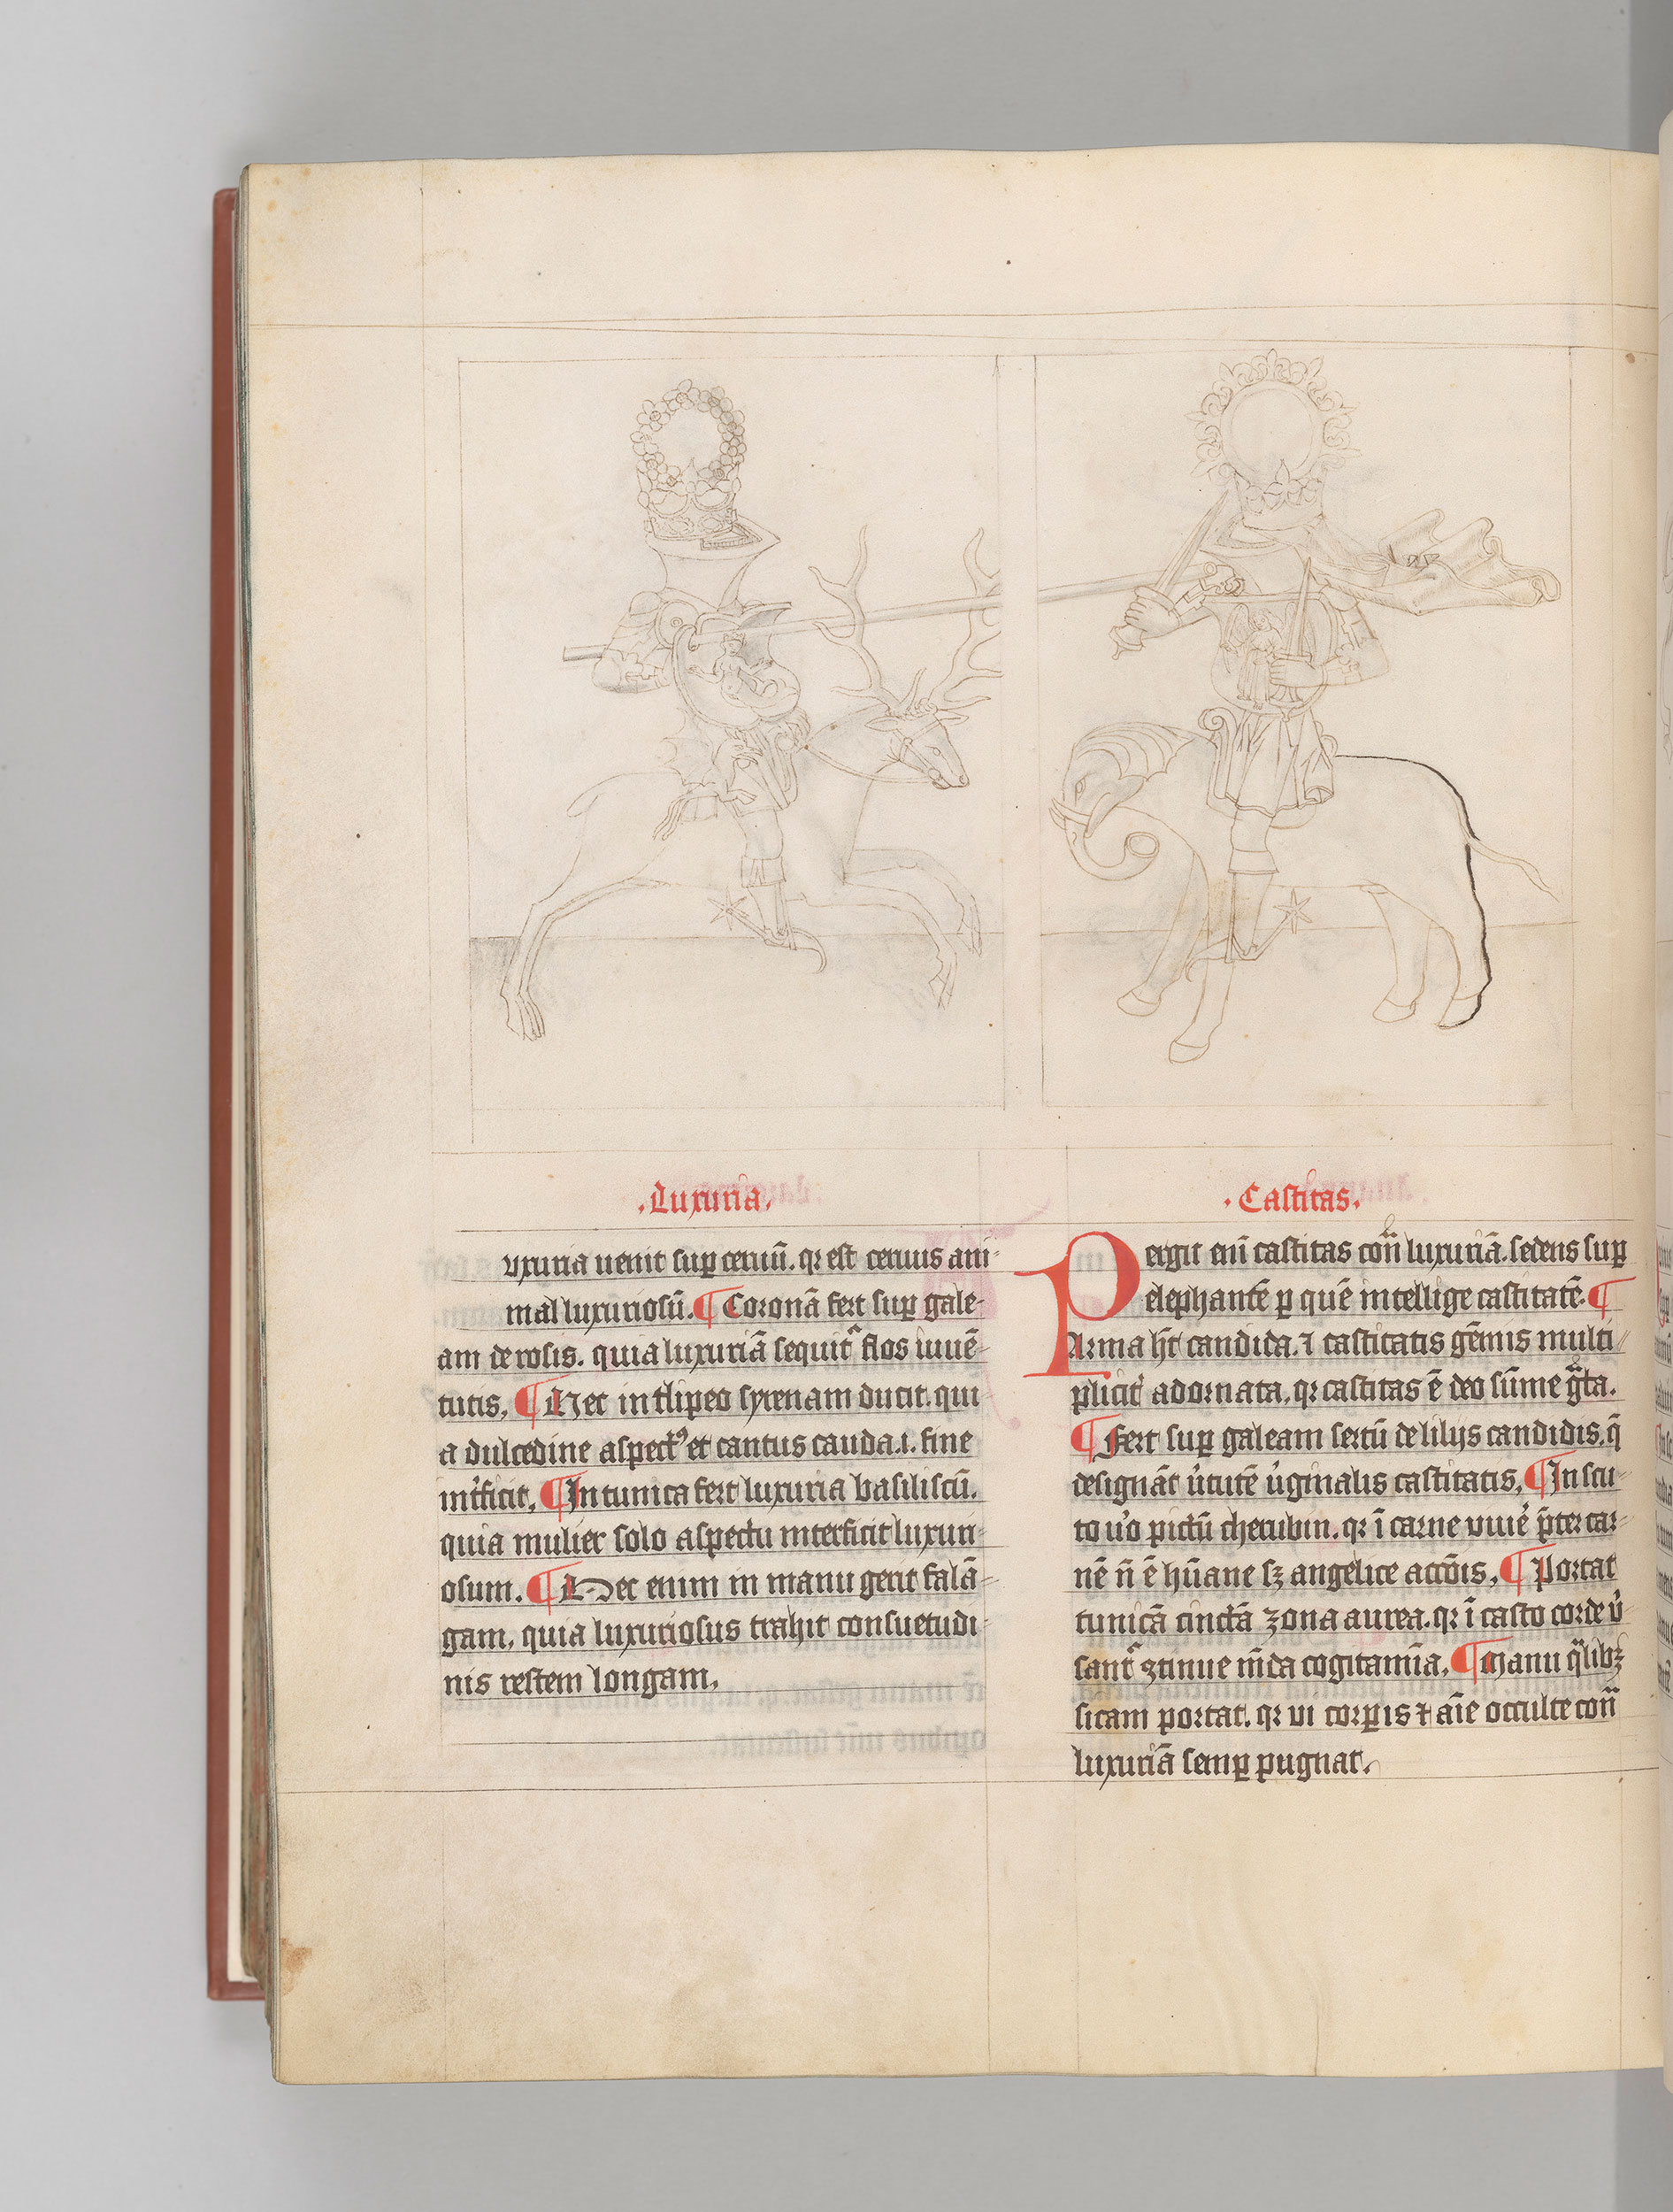 .Luxuria.
uxuria uenit sup ceruū. qꝛ est ceruus ani-
mal luxuriosū. ¶ Coronā fert sup gale-
am de rosis. quia luxuriā sequit᷑ flos iuuē-
tutis, ¶ Hec in clipeo syrenam ducit. qui
a dulcedine aspectꝰ et cantus cauda .i. fine
int̓ficit, ¶ In tunica fert luxuria basiliscū.
quia mulier solo aspectu interficit luxuri-
osum. ¶ Hec enim in manu gerit falā-
gam, quia luxuriosus trahit consuetudi-
nis restem longam,
.Castitas.
Pergit eni̅ castitas con̅ luxuriā. sedens sup
elephantē p quē intellige castitatē. ¶
Arma hꝫ candida. ⁊ castitatis gēmis multi-
plicit̓ adornata, qꝛ castitas ē deo sūme gͣta.
¶ Fert sup galeam sertū de lilijs candidis, q̄
designāt v̓tutē v̓ginalis castitatis, ¶ In scu-
to v̓o pictū cherubin. qꝛ ī carne viue̓ p̄ter car-
nē n̄ ē hūane sꝫ angelice acco̅is, ¶ Portat
tunicā cinctā zona aurea. qꝛ ī casto corde v̓-
sant᷑ ꝯtinue m̄da cogitamīa, ¶ Manu qͣlibꝫ
sicam portat. qꝛ vi corpis ⁊ aīe occulte con̅
luxuriā semp pugnat.